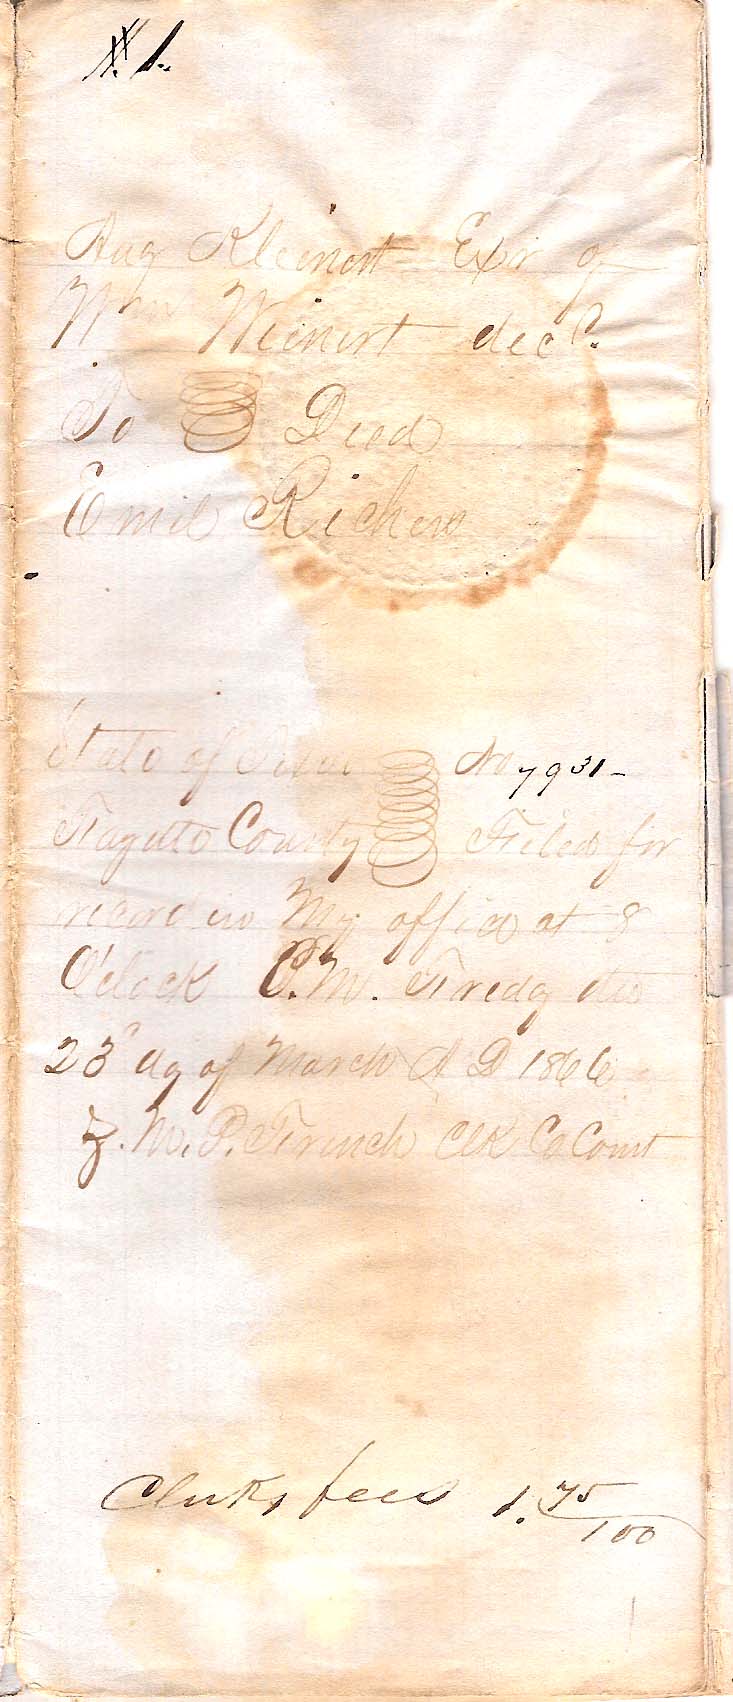 # 1.
Aug Kleinert Exr of
Wm Weinert decd.
To Deed
Emil Richers
State of Texas No 7931-
Fayette County Filed for
record in My office at 8
O'clock P.M. Friday the
23" dy of March A D 1866
Z. M. P. French Clk Co Court
Clerks fees 1.75/100